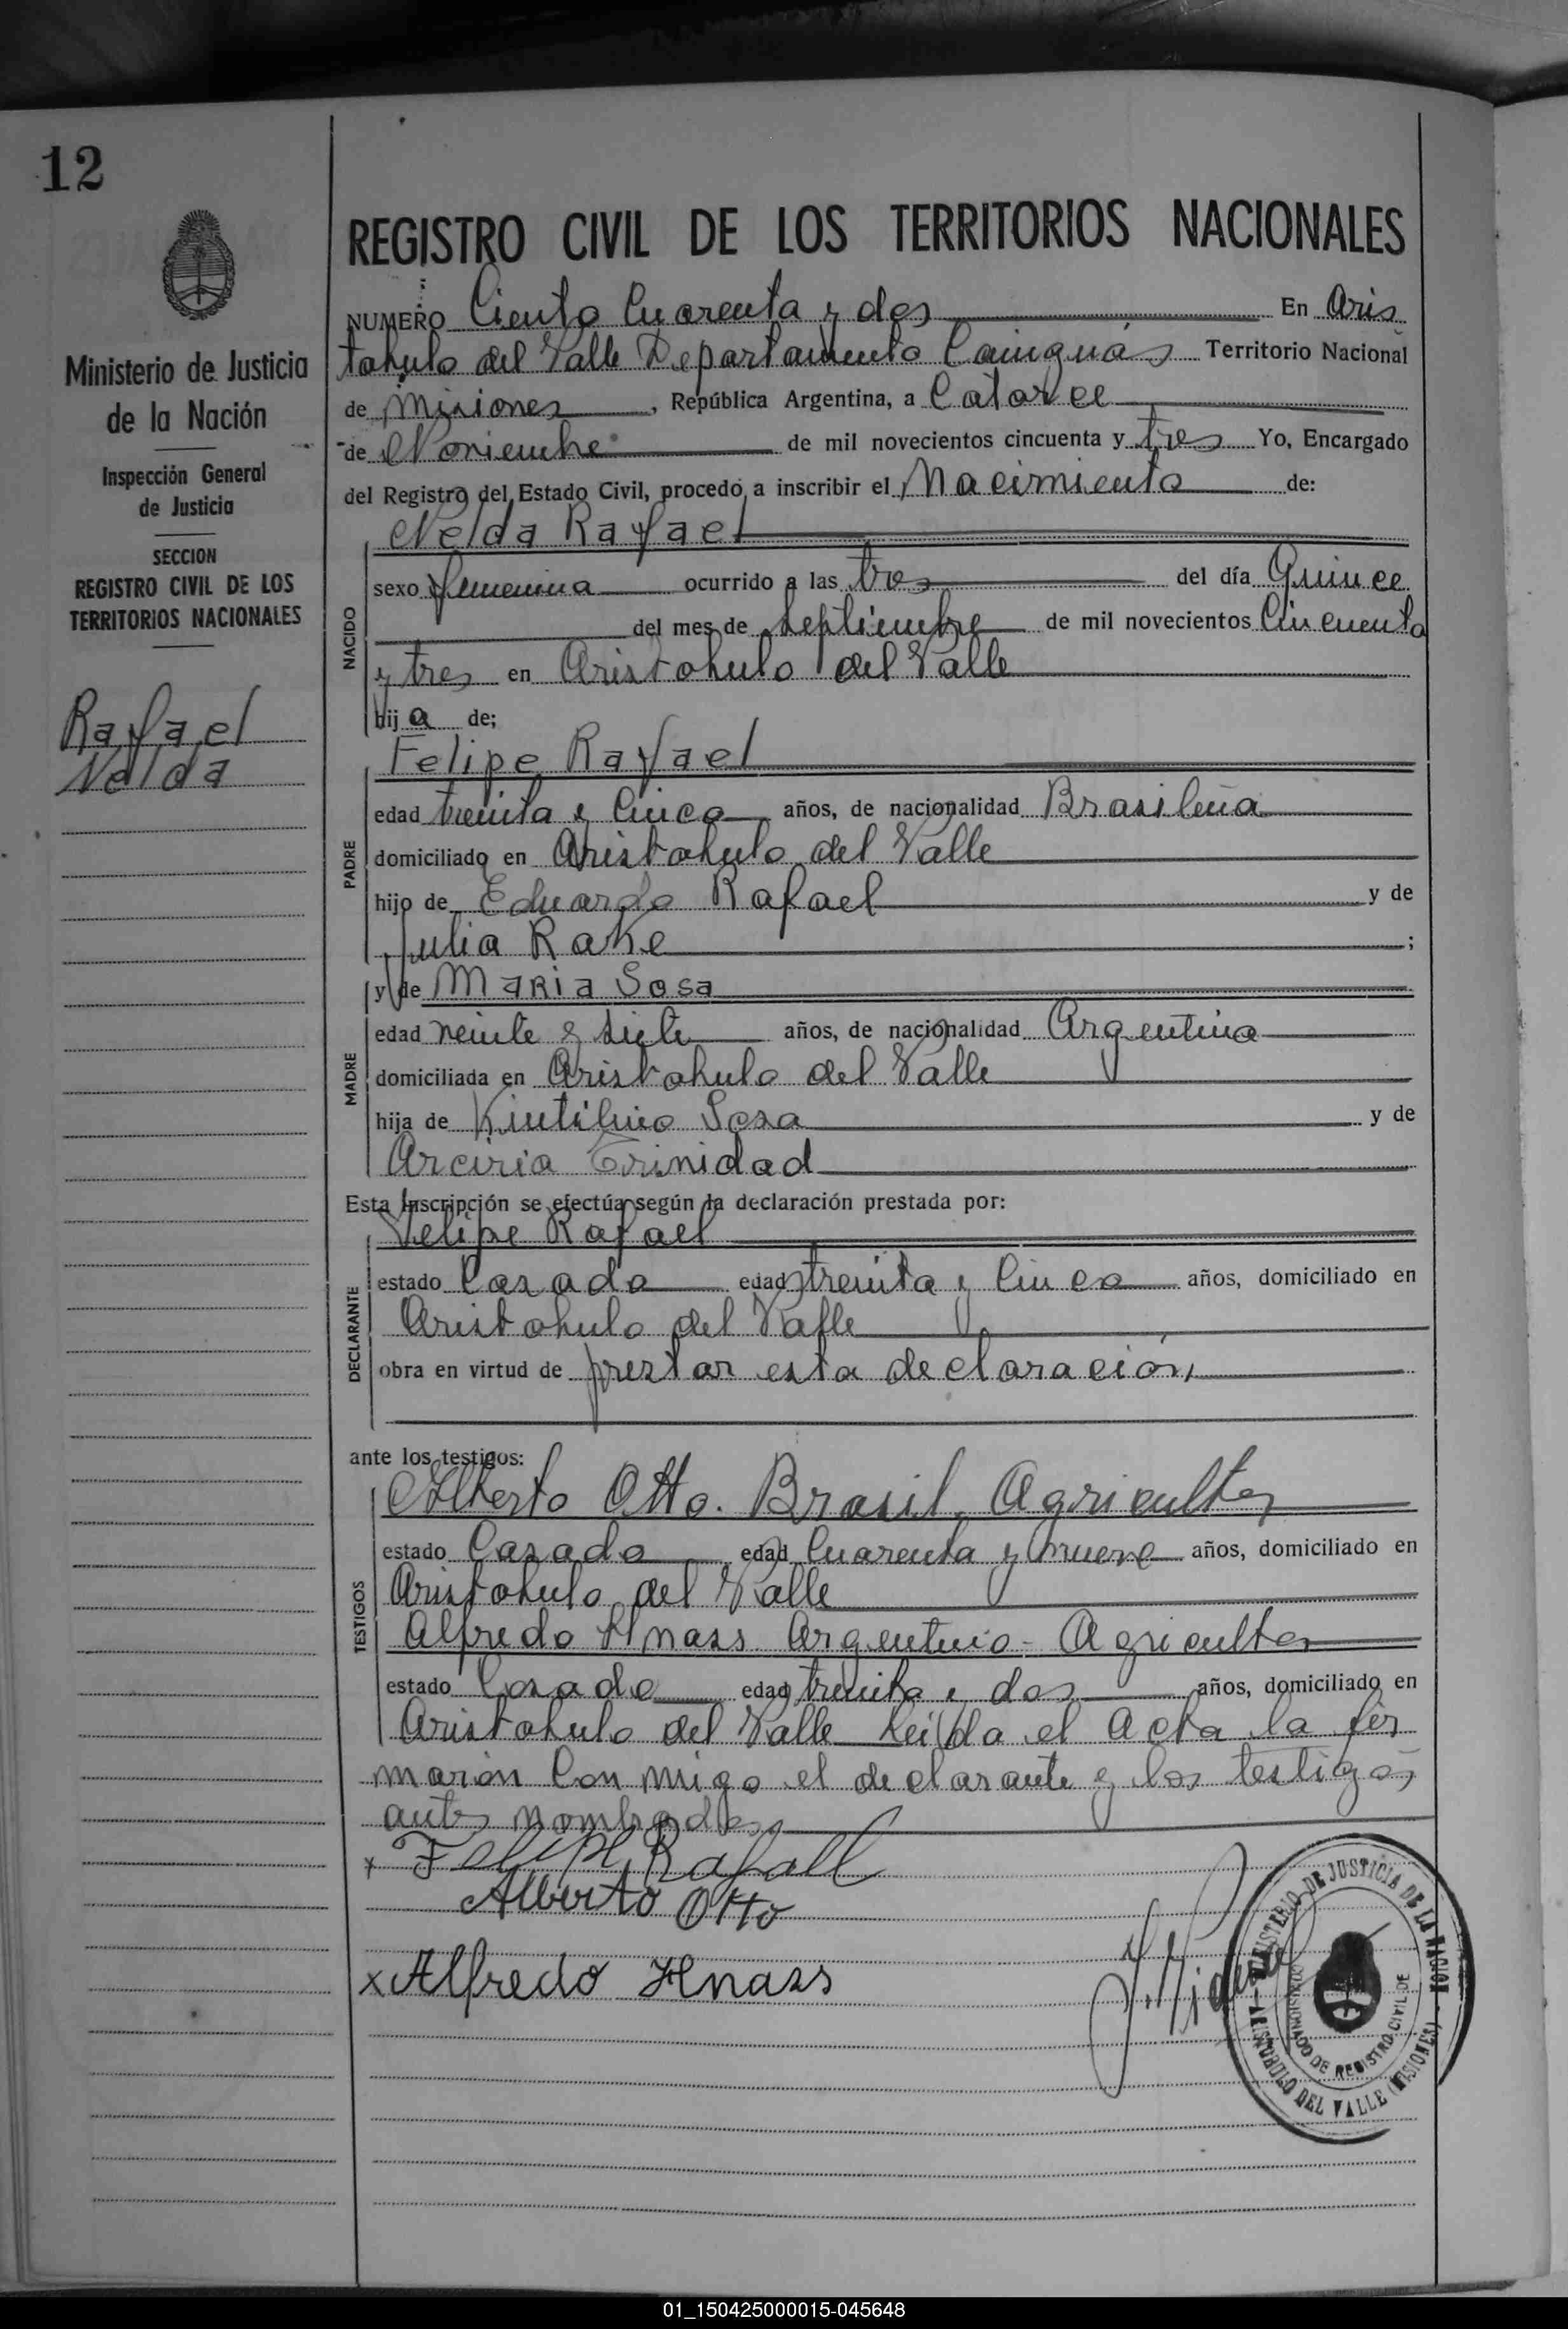 12
Ministerio de Justicia
de la Nación
Inspección General
de Justicia
SECCION
REGISTRO CIVIL DE LOS
TERRITORIOS NACIONALES
Rafael
Nelda
REGISTRO CIVIL DE LOS TERRITORIOS NACIONALES
NUMERO Ciento Cuarenta y dos En Aris
tobulo del Valle Departamento Cainguás Territorio Nacional
de Misiones, República Argentina, a Catorce
de Noviembre de mil novecientos cincuenta y tres Yo, Encargado
del Registro del Estado Civil, procedo a inscribir el Nacimiento de:
Nelda Rafael
NACIDO
sexo femenina ocurrido a las tres del día Quince
del mes de Septiembre de mil novecientos Cincuenta
y tres en Aristobulo del Valle
hija de;
Felipe Rafael
PADRE
edad treinta y Cinco años, de nacionalidad Brasileña
domiciliado en Aristobulo del Valle
hijo de Eduardo Rafael y de
Julia Rake;
y de Maria Sosa
MADRE
edad veinte y siete años, de nacionalidad Argentina
domiciliada en Aristobulo del Valle
hija de Kintilino Sosa y de
Arciria Trinidad
Esta Inscripción se efectúa según la declaración prestada por:
Felipe Rafael
DECLARANTE
estado Casado edad treinta y Cinco años, domiciliado en
Aristobulo del Valle
obra en virtud de prestar esta declaración
ante los testigos:
Alberto Otto. Brasil. Agricultor
TESTIGOS
estado Casado edad Cuarenta y nueve años, domiciliado en
Aristobulo del Valle
Alfredo Hnass Argentino - Agricultor
estado Casado edad treinta y dos años, domiciliado en
Aristobulo del Valle Leida el Acta la fir
maron Con migo el declarante y los testigos
antes nombrados
x Felipe Rafael
Alberto Otto
x Alfredo Hnass
MINISTERIO DE JUSTICIA DE LA NACION
ARISTOBULO DEL VALLE (MISIONES)
DE REGISTRO CIVIL DE